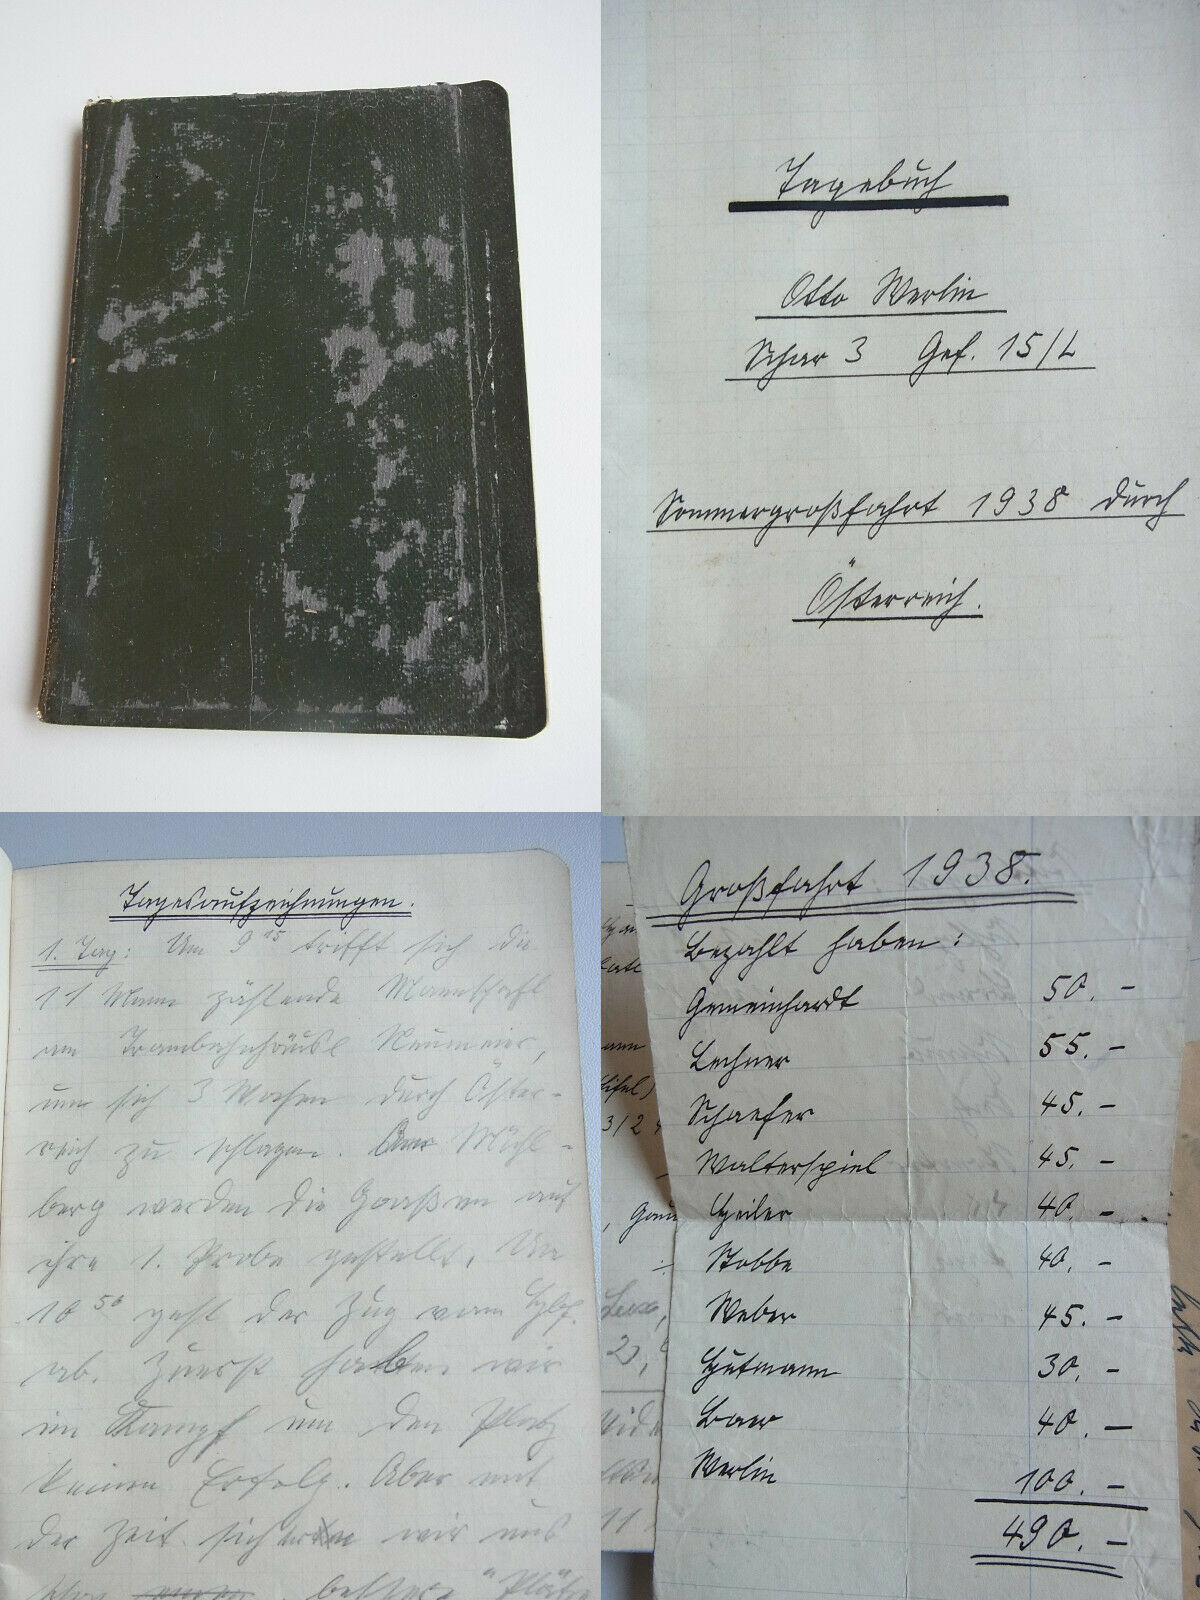 Tagebuch
Otto Werlin
Schar 3 Gef. 15/L
Sommergroßfahrt 1938 durch
Österreich.
Tagesaufzeichnungen.
1. Tag: Um 9 15 trifft sich die
11 Mann zählende Mannschaft
am Trambahnhäusl Neumeier,
um sich 3 Wochen durch Öster-
reich zu schlagen. Am Mühl-
berg werden die Haxen auf
ihre 1. Probe gestellt. Um
10 50 geht der Zug vom Hbf.
ab. Zuerst haben wir
im Kampf um den Platz
keinen Erfolg. Aber mit
der Zeit sichern wir uns
bessere "Plätze
Großfahrt 1938.
Bezahlt haben:
Gemeinhardt 50.-
Lechner 55.-
Schaefer 45.-
Walterspiel 45.-
Heiler 40.-
Stobbe 40.-
Weber 45.-
Gutmann 30.-
Baur 40.-
Werlin 100.-
490.-